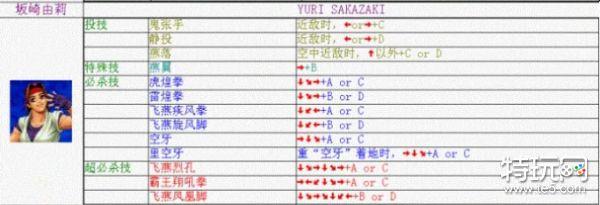 坂崎由莉 YURI SAKAZAKI
投技 鬼张手 近敌时，←or→+C
静投 近敌时，←or→+D
燕落 空中近敌时，↑以外+C or D
特殊技 燕翼 →+B
必杀技 虎煌拳 ↓↘→+A or C
雷煌拳 ↓↘→+B or D
飞燕疾风拳 ↓↙←+A or C
飞燕旋风脚 ↓↙←+B or D
空牙 →↓↘+A or C
里空牙 重“空牙”着地时，→↓↘+A or C
超必杀技 飞燕烈孔 ↓↘→↓↘→+A or C
霸王翔吼拳 →←↙↓↘→+A or C
飞燕凤凰脚 ↓↘→↘↓↙←+B or D
特玩网
www.te5.com